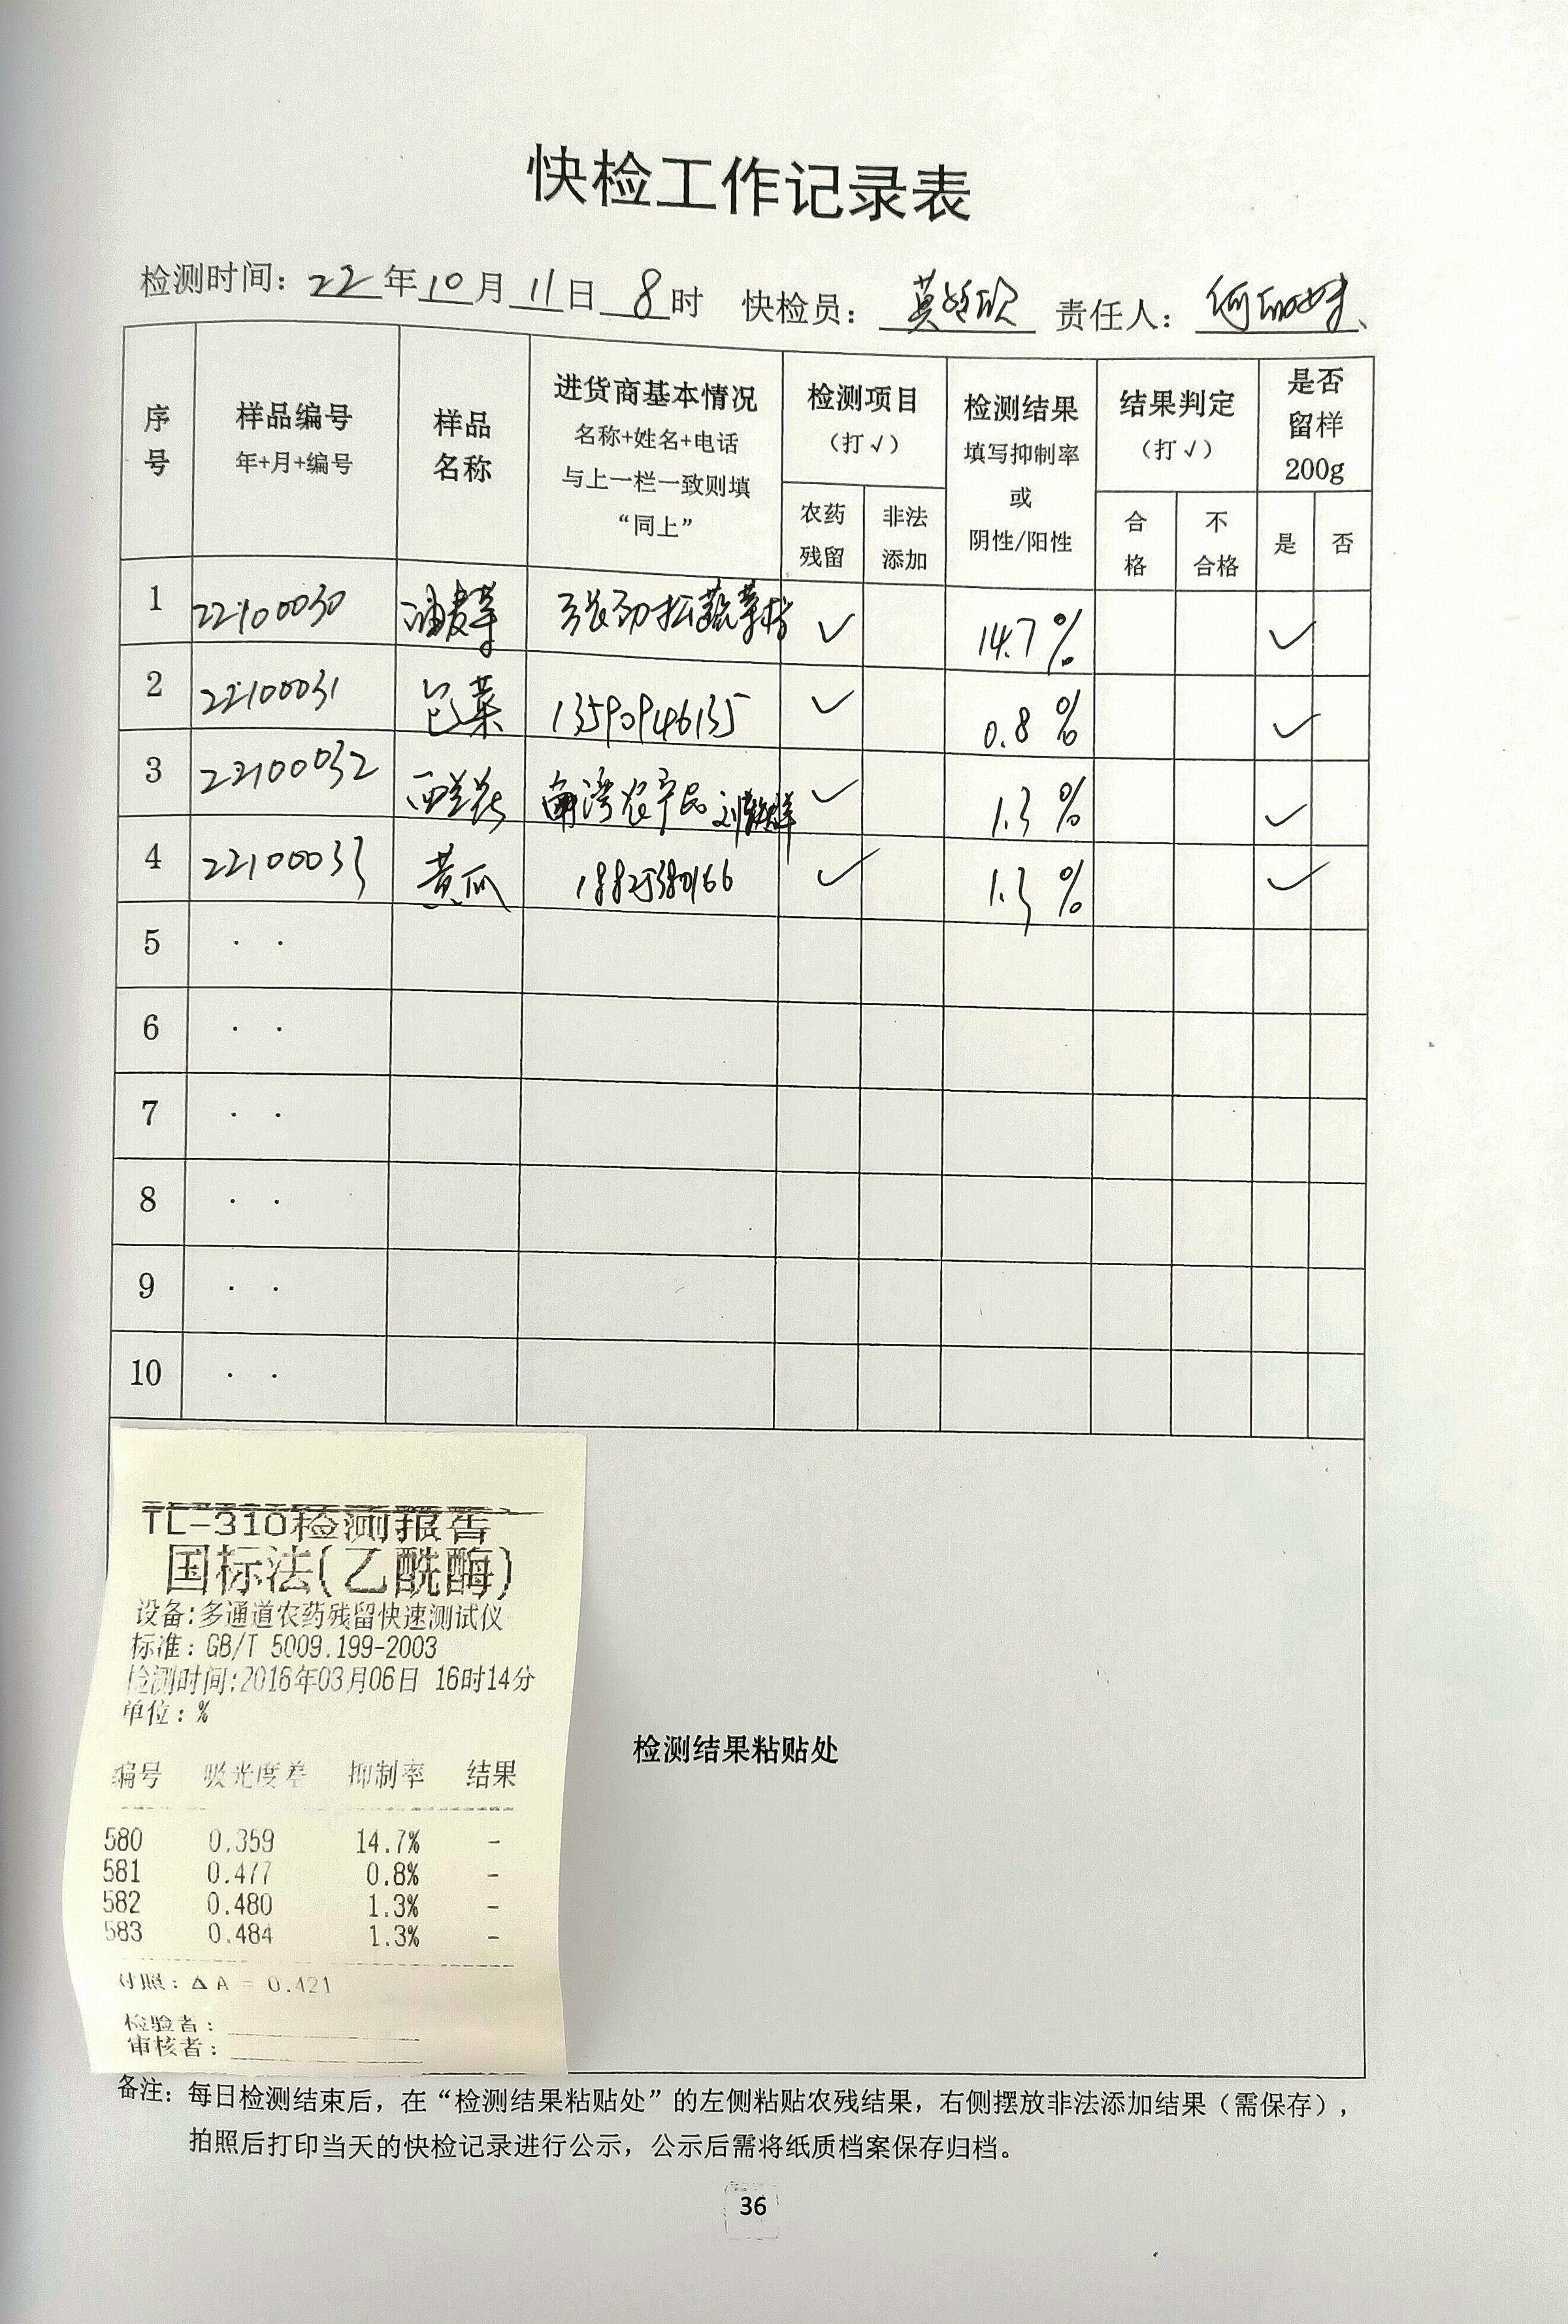 快检工作记录表
检测时间：22年10月11日8时 快检员： 责任人：
序号 样品编号 年+月+编号 样品名称 进货商基本情况 名称+姓名+电话 与上一栏一致则填“同上” 检测项目（打√） 农药残留 非法添加 检测结果 填写抑制率或阴性/阳性 结果判定（打√） 合格 不合格 是否留样200g 是 否
1 22100030 油麦菜 张劲松蔬菜档 ✓ 14.7% ✓
2 22100031 包菜 13590946135 ✓ 0.8% ✓
3 22100032 西兰花 南湾农产品 ✓ 1.3% ✓
4 22100033 黄瓜 18825380166 ✓ 1.3% ✓
5 · ·
6 · ·
7 · ·
8 · ·
9 · ·
10 · ·
TL-310检测报告
国标法(乙酰酶)
设备:多通道农药残留快速测试仪
标准：GB/T 5009.199-2003
检测时间:2016年03月06日 16时14分
单位：%
编号 吸光度差 抑制率 结果
580 0.359 14.7% -
581 0.477 0.8% -
582 0.480 1.3% -
583 0.484 1.3% -
对照：ΔA = 0.421
检验者：
审核者：
检测结果粘贴处
备注：每日检测结束后，在“检测结果粘贴处”的左侧粘贴农残结果，右侧摆放非法添加结果（需保存），
拍照后打印当天的快检记录进行公示，公示后需将纸质档案保存归档。
36